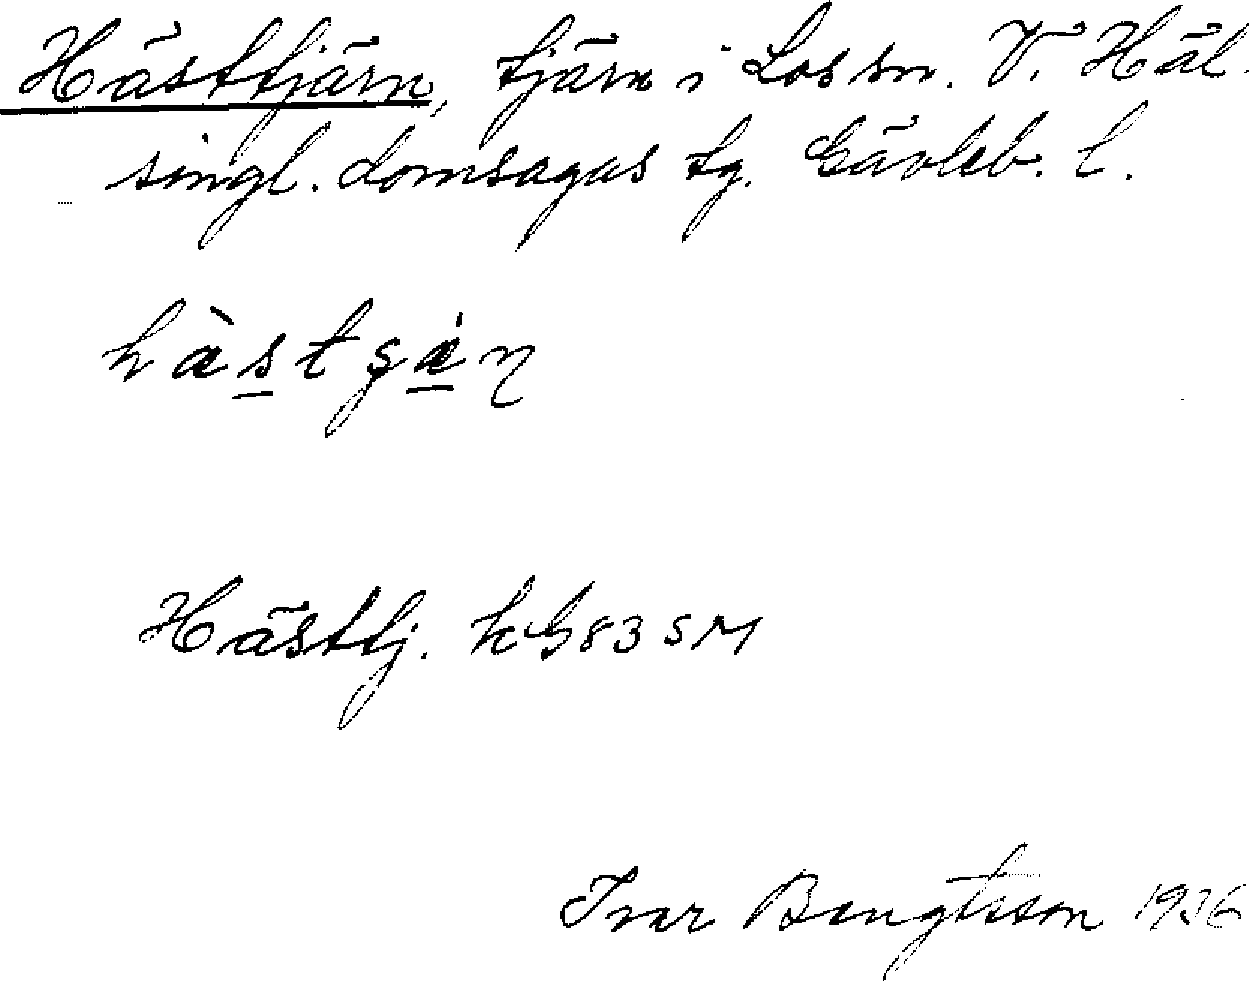 Hästtjärn, tjärn i Los sn. V. Häl-
singl. domsagas tg. Gävleb. l.
hàstʂæ̀ɳ
Hästtj. kG83 SM
Ivar Bengtsson 1936